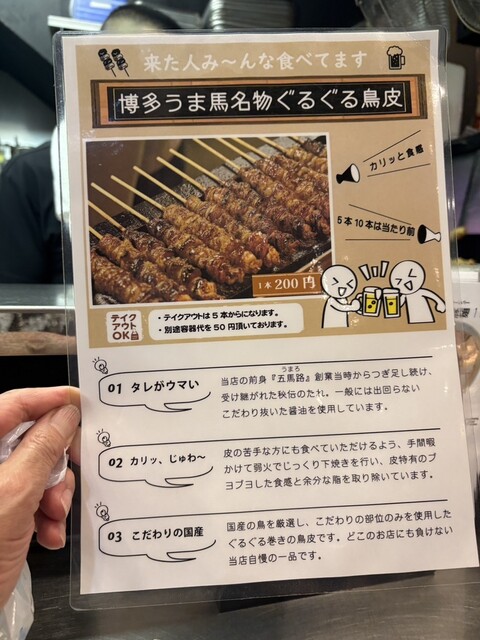 来た人み〜んな食べてます
博多うま馬名物ぐるぐる鳥皮
カリッと食感
5本10本は当たり前
1本200円
テイク
アウト
OK
・テイクアウトは5本からになります。
・別途容器代を50円頂いております。
01 タレがウマい
うまろ
当店の前身『五馬路』創業当時からつぎ足し続け、
受け継がれた秘伝のたれ。一般には出回らない
こだわり抜いた醤油を使用しています。
02 カリッ、じゅわ〜
皮の苦手な方にも食べていただけるよう、手間暇
かけて弱火でじっくり下焼きを行い、皮特有のブ
ヨブヨした食感と余分な脂を取り除いています。
03 こだわりの国産
国産の鳥を厳選し、こだわりの部位のみを使用した
ぐるぐる巻きの鳥皮です。どこのお店にも負けない
当店自慢の一品です。